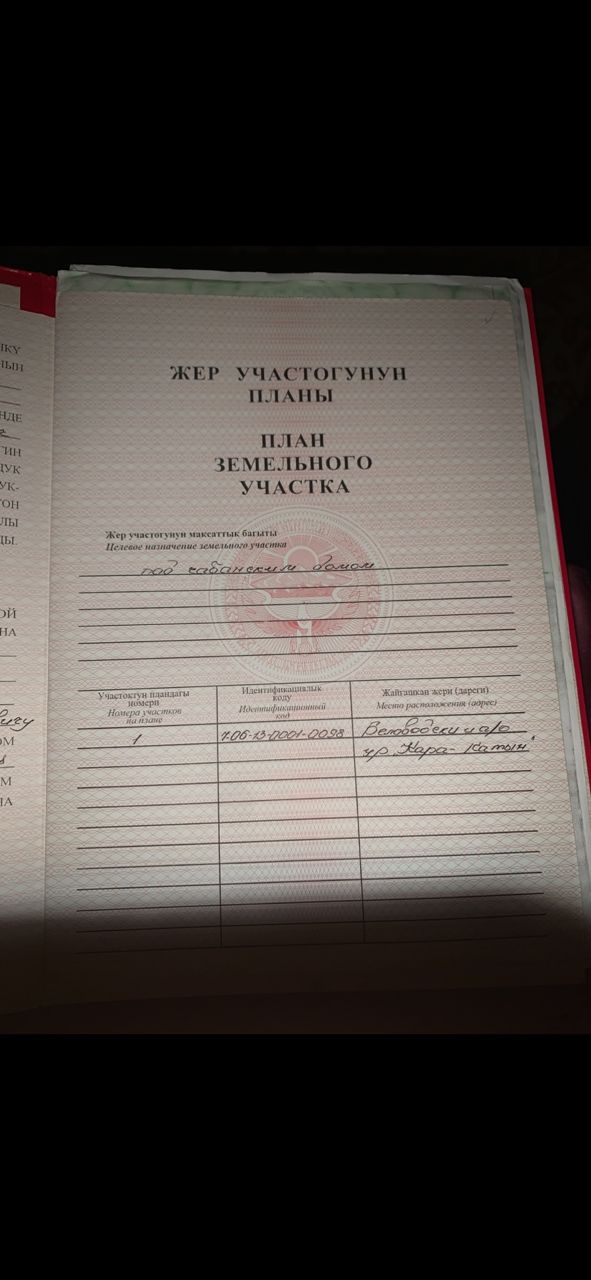 ЖЕР УЧАСТОГУНУН
ПЛАНЫ
ПЛАН
ЗЕМЕЛЬНОГО
УЧАСТКА
Жер участогунун максаттык багыты
Целевое назначение земельного участка
под чабанским домом
Участоктун пландагы
номери
Номера участков
на плане
Идентификациялык
коду
Идентификационный
код
Жайгашкан жери (дареги)
Место расположения (адрес)
1
7-06-13-0001-0098
Беловодский а/о
ур. "Кара-Катын"
НДЕ
ГИН
ДУК
УК-
ОЙ
НА
ОМ
М